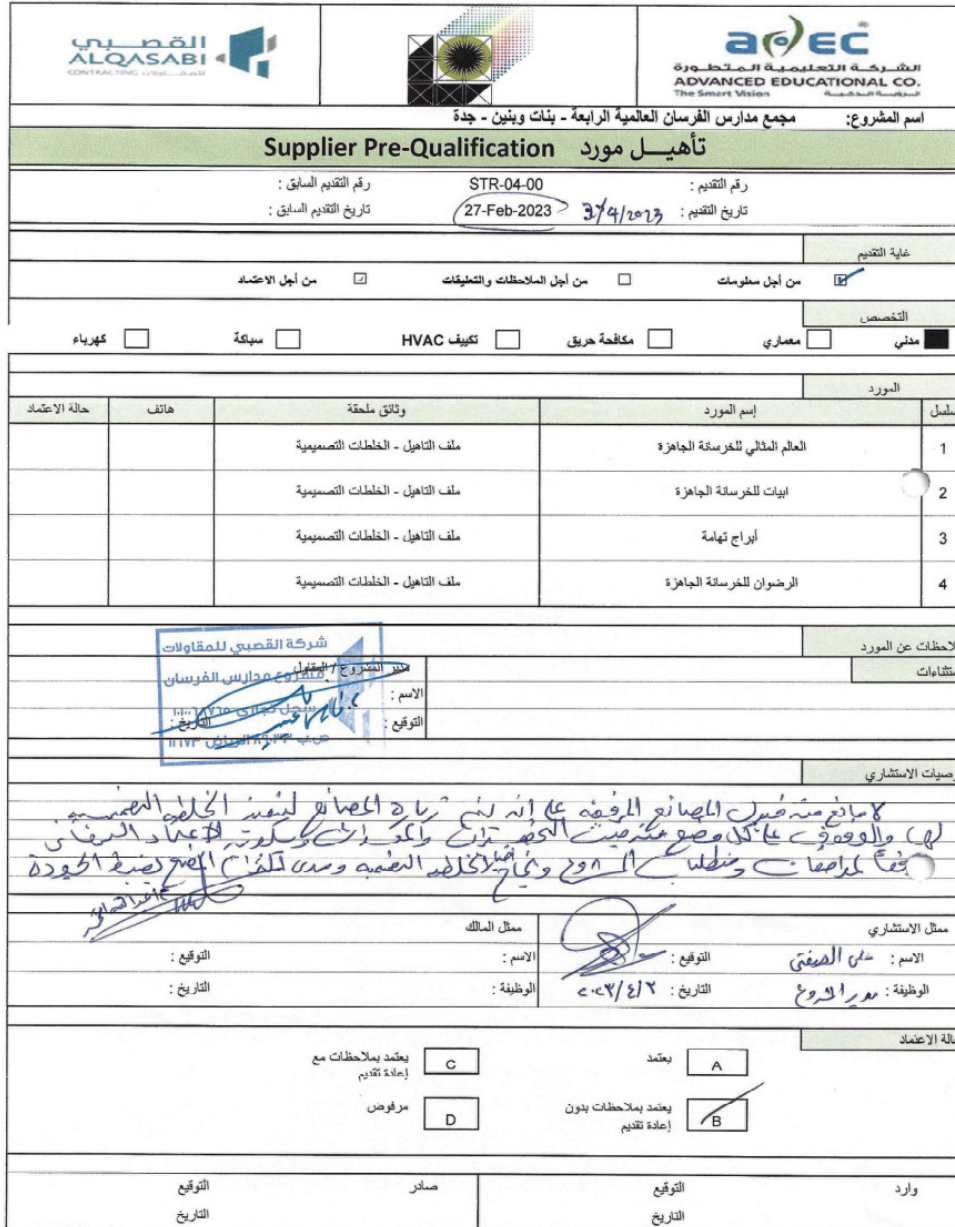 القصبي
ALQASABI
CONTRACTING للمقاولات
apec
الشركة التعليمية المتطورة
ADVANCED EDUCATIONAL CO.
The Smart Vision الرؤية الذكية
اسم المشروع: مجمع مدارس الفرسان العالمية الرابعة - بنات وبنين - جدة
تأهيل مورد Supplier Pre-Qualification
رقم التقديم : STR-04-00 رقم التقديم السابق :
تاريخ التقديم : 3/4/2023 27-Feb-2023 تاريخ التقديم السابق :
غاية التقديم
من أجل معلومات من أجل الملاحظات والتعليقات من أجل الاعتماد
التخصص
مدني معماري مكافحة حريق تكييف HVAC سباكة كهرباء
المورد
سلسل إسم المورد وثائق ملحقة هاتف حالة الاعتماد
1 العالم المثالي للخرسانة الجاهزة ملف التاهيل - الخلطات التصميمية
2 ابيات للخرسانة الجاهزة ملف التاهيل - الخلطات التصميمية
3 أبراج تهامة ملف التاهيل - الخلطات التصميمية
4 الرضوان للخرسانة الجاهزة ملف التاهيل - الخلطات التصميمية
لاحظات عن المورد
ستثناءات
شركة القصبي للمقاولات
مدير المشروع / المقاول
مشروع مدارس الفرسان
الاسم :
سجل تجاري
التوقيع : التاريخ :
ص.ب الرياض
وصيات الاستشاري
لا مانع من قبول المصانع المرفقة على انه يتم زيارة المصانع لتنفيذ الخلطه التصميميه
لها والوقوف على كل مصنع من حيث وسيكون الاعتماد النهائي
لمواصفات ومتطلبات المشروع ونجاح الخلطه التصميميه ومدى التزام المصنع لضبط الجودة
ممثل الاستشاري ممثل المالك
الاسم : التوقيع : الاسم : التوقيع :
الوظيفة : مدير المشروع التاريخ : ٢٠٢٣/٤/٢ الوظيفة : التاريخ :
الة الاعتماد
A يعتمد C يعتمد بملاحظات مع إعادة تقديم
B يعتمد بملاحظات بدون إعادة تقديم D مرفوض
وارد التوقيع صادر التوقيع
التاريخ التاريخ